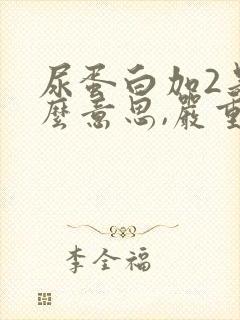 尿蛋白加2是
麼意思,嚴重
李全福